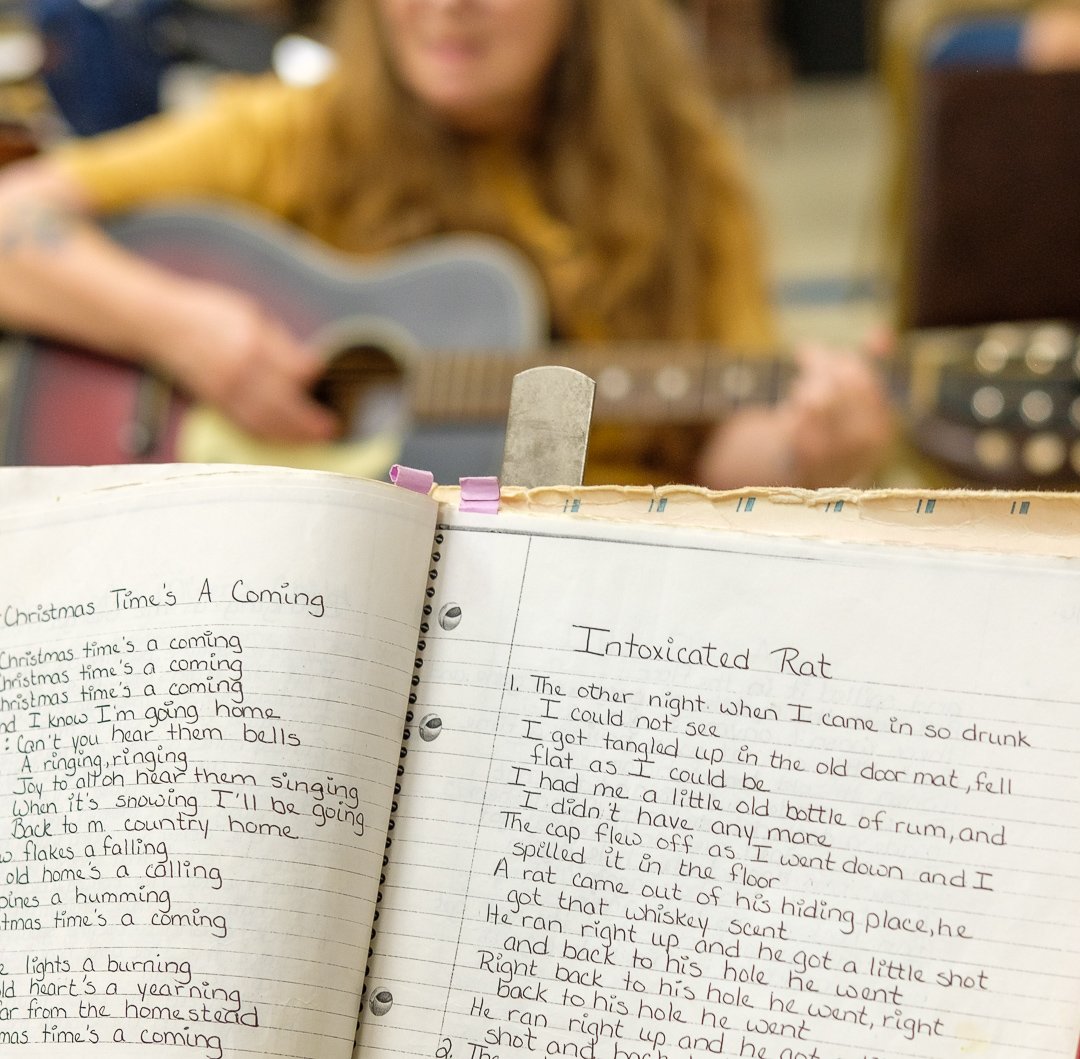 Christmas Time's A Coming
Christmas time's a coming
Christmas time's a coming
Christmas time's a coming
nd I know I'm going home
: Can't you hear them bells
A ringing, ringing
Joy to all oh hear them singing
When it's snowing I'll be going
Back to m country home
w flakes a falling
old home's a calling
pines a humming
tmas time's a coming
e lights a burning
ld heart's a yearning
ar from the homestead
mas time's a coming
Intoxicated Rat
1. The other night when I came in so drunk
I could not see
I got tangled up in the old door mat, fell
flat as I could be
I had me a little old bottle of rum, and
I didn't have any more
The cap flew off as I went down and I
spilled it in the floor
A rat came out of his hiding place, he
got that whiskey scent
He ran right up and he got a little shot
and back to his hole he went
Right back to his hole he went, right
back to his hole he went
He ran right up and he got
shot and back
2. The